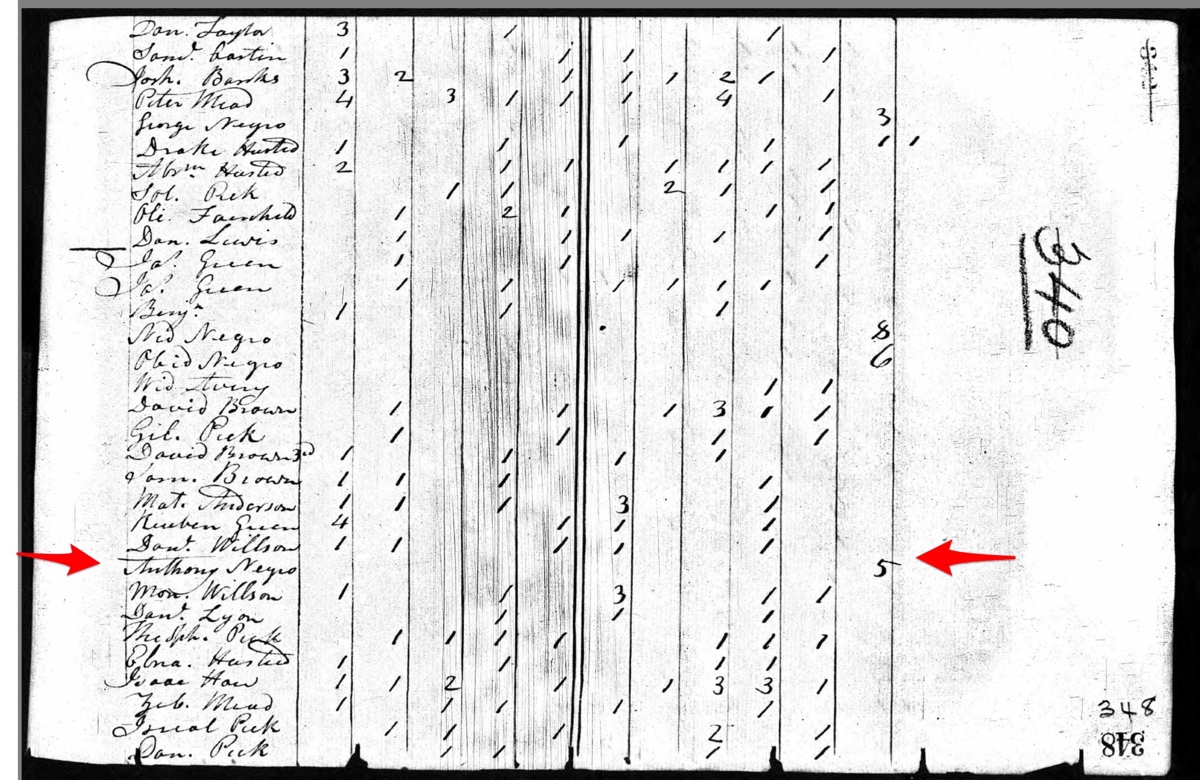 Dan. Taylor 3 1 1
Saml. Castin 1 1 1 1
Josh. Banks 3 2 1 1 1 2 1
Peter Mead 4 3 1 1 1 4 1
George Negro 3
Drake Husted 1 1 1 1 1 1
Abrm Husted 2 1 1 1 1 1 1
Sol. Peck 1 1 2 1 1
Oli. Fairchild 1 2 1 1 1
Dan. Lewis 1 1 1 1 1
Ja. Green 1 1 1
Ja. Green 1 1 1 1 1 1
Benjn. 1 1 1
Ned Negro 8
Obid Negro 6
Wid Avery 1 1
David Brown 1 1 1 3 1 1
Gil. Peck 1 1 1 1
David Brown 3d 1 1 1 1
Sam. Brown 1 1 1 1
Mat. Anderson 1 1 1 3 1
Reuben Green 4 1 1 1
Danl. Willson 1 1 1 1 1
Anthony Negro 5
Mon. Willson 1 1 3 1 1
Danl. Lyon 1 1 1
Theoph. Peck 1 1 1 1 1 1 1
Ebna. Husted 1 1 1 1
Isaac How 1 1 2 1 1 3 3 1
Zeb. Mead 1 1 1 1 1
Isreal Peck 1 1 1 2 1
Dan. Peck 1 1 1 1
340
348
348